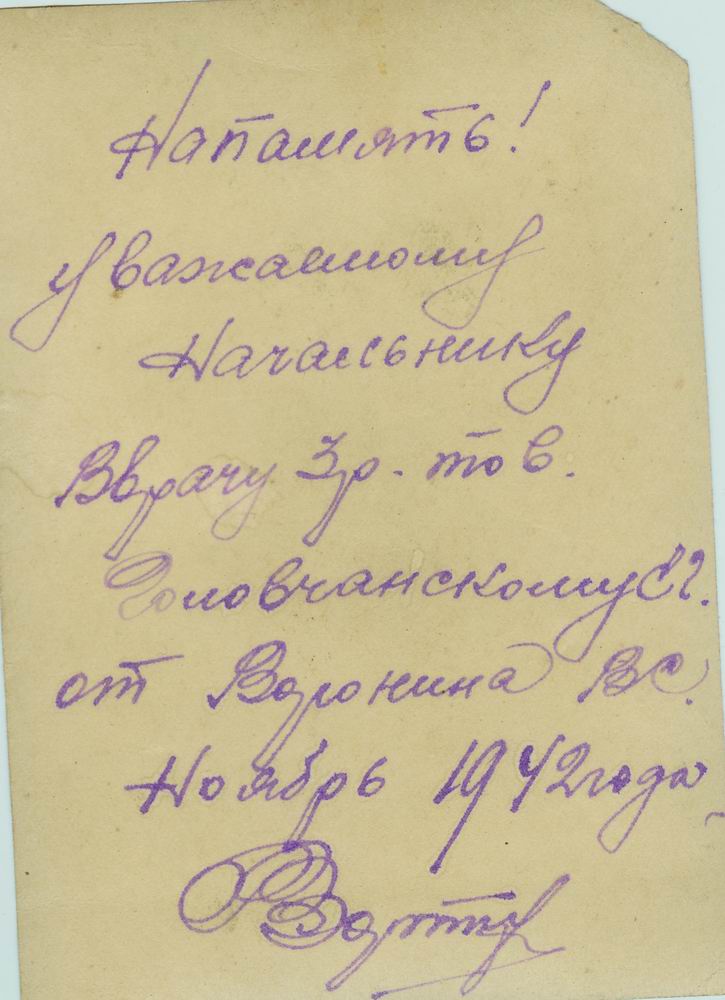 На память!
Уважаемому
Начальнику
Вврачу 3р. тов.
Головчанскому С г.
от Воронина ВС.
Ноябрь 1942 года